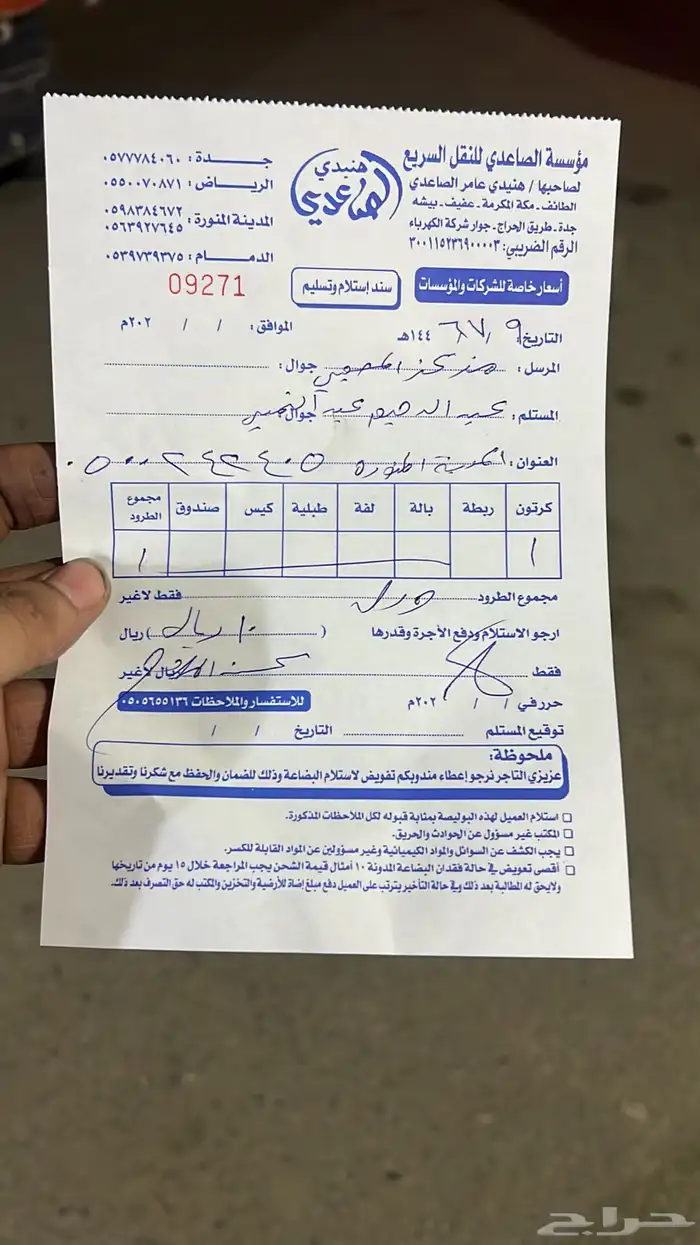 مؤسسة الصاعدي للنقل السريع
لصاحبها / هنيدي عامر الصاعدي
الطائف - مكة المكرمة - عفيف - بيشه
جدة - طريق الحراج - جوار شركة الكهرباء
الرقم الضريبي: ٣٠٠١١٥٢٣٦٩٠٠٠٠٣
هنيدي
الصاعدي
جـــدة : ٠٥٧٧٧٨٤٠٦٠
الريـاض : ٠٥٥٠٠٧٠٨٧١
المدينة المنورة : ٠٥٩٨٣٨٤٦٧٢
٠٥٦٣٩٢٧٦٤٥
الدمـام : ٠٥٣٩٧٣٩٣٧٥
أسعار خاصة للشركات والمؤسسات
سند إستلام وتسليم
09271
التاريخ ٩ / ٧ / ١٤٤٦هـ
الموافق : / / ٢٠٢م
المرسل : جوال :
المستلم : عبد الرحيم عبد جوال
العنوان : المدينة المنورة ٠٥٠٠٢٤٢٤٠٥
كرتون ربطة بالة لفة طبلية كيس صندوق مجموع الطرود
١ ١
مجموع الطرود فقط لاغير
ارجو الاستلام ودفع الأجرة وقدرها ( ١٠ ريال ) ريال
فقط ريال لاغير
حرر في / / ٢٠٢م
للاستفسار والملاحظات ٠٥٠٥٦٥٥١٣٦
توقيع المستلم التاريخ / /
ملحوظة:
عزيزي التاجر نرجو إعطاء مندوبكم تفويض لاستلام البضاعة وذلك للضمان والحفظ مع شكرنا وتقديرنا
استلام العميل لهذه البوليصة بمثابة قبوله لكل الملاحظات المذكورة.
المكتب غير مسؤول عن الحوادث والحريق.
يجب الكشف عن السوائل والمواد الكيميائية وغير مسؤولين عن المواد القابلة للكسر.
أقصى تعويض في حالة فقدان البضاعة المدونة ١٠ أمثال قيمة الشحن يجب المراجعة خلال ١٥ يوم من تاريخها
ولايحق له المطالبة بعد ذلك وفي حالة التأخير يترتب على العميل دفع مبلغ إضافة للأرضية والتخزين والمكتب له حق التصرف بعد ذلك.
حراج